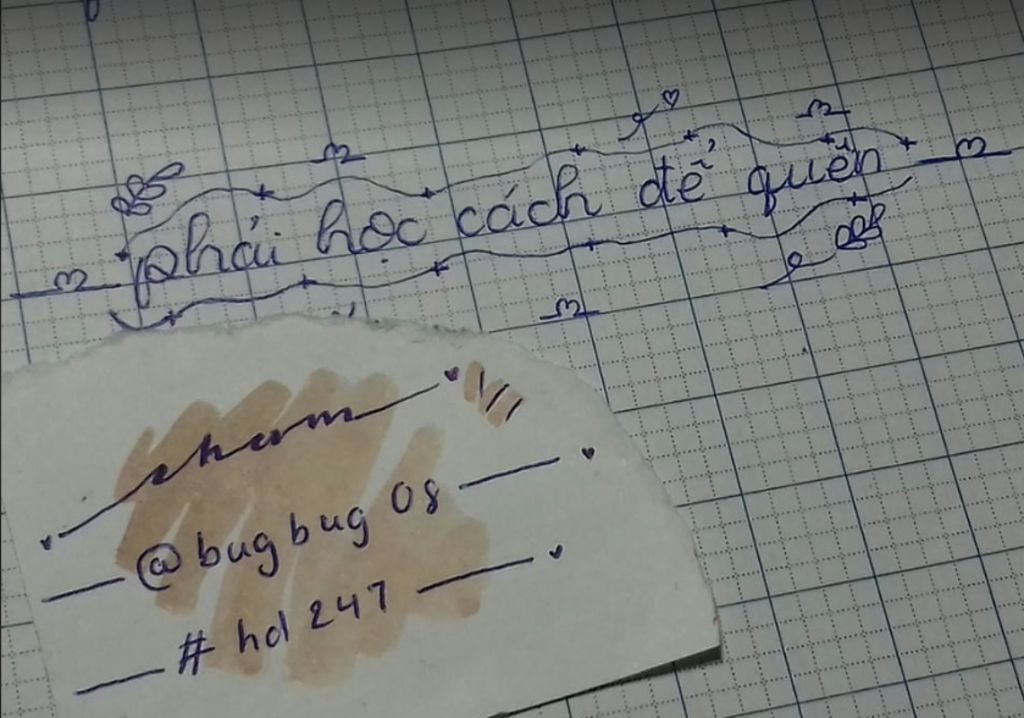 phải học cách để quên
@bugbug 08
# hd 247